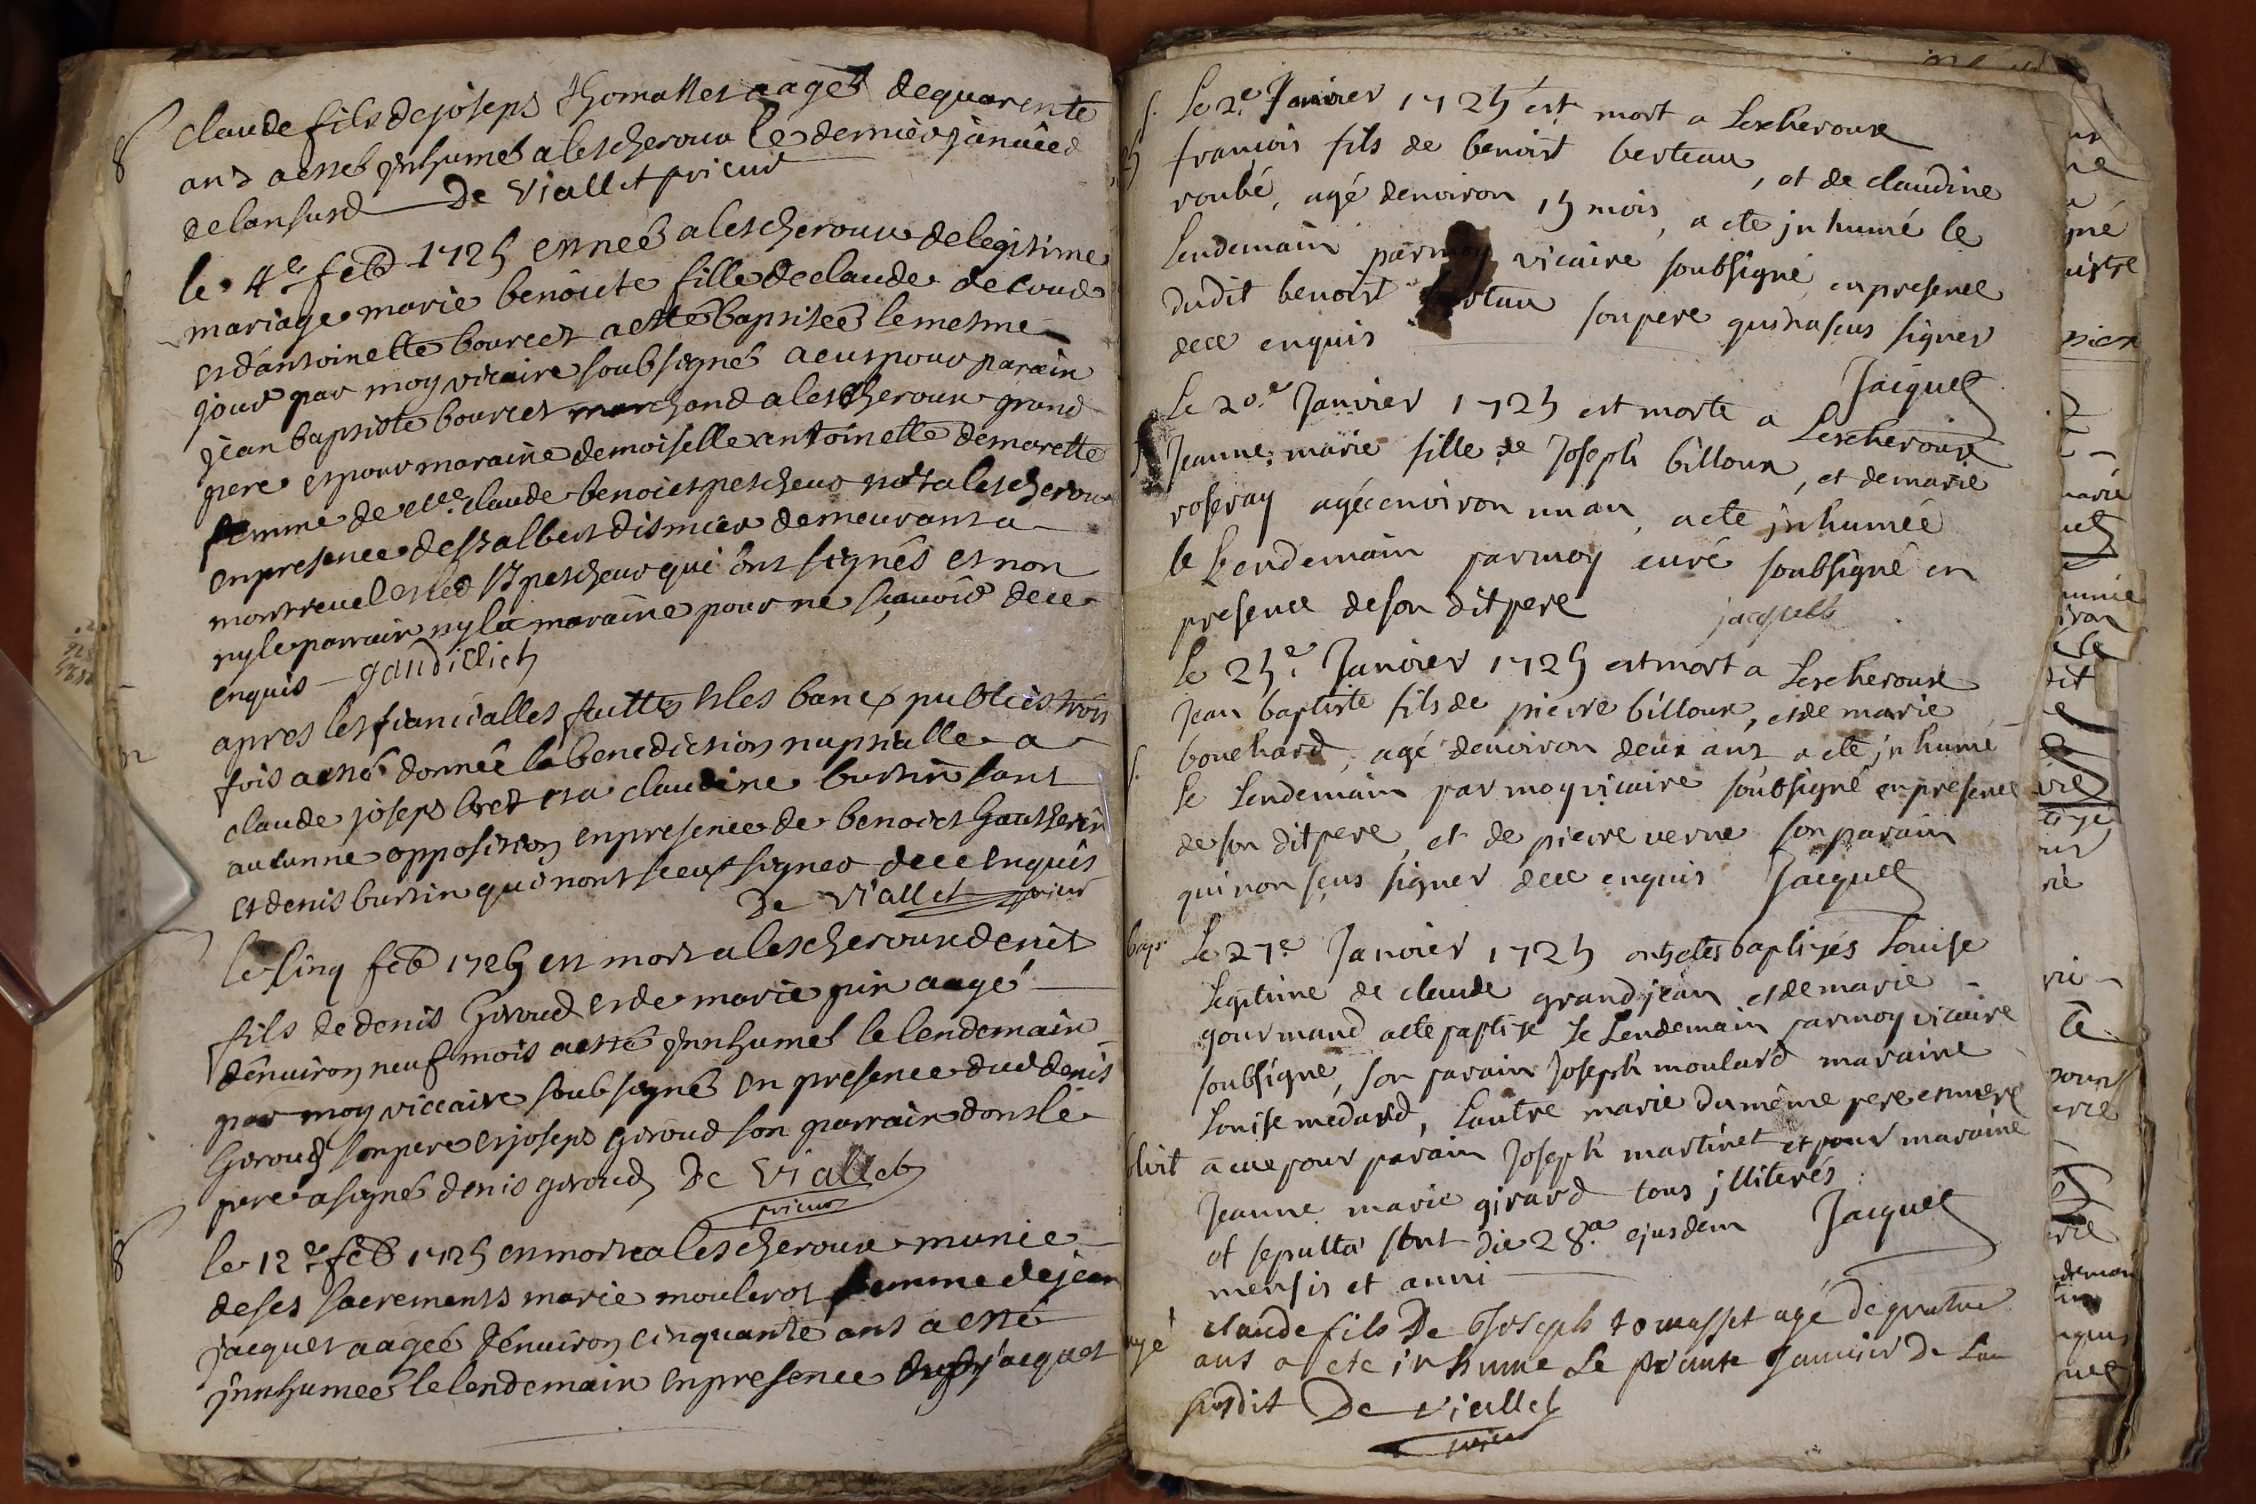 claude fils de joseph thomasset aagé de quarente
ans a esté Innhumé a lescheroux le dernier janvier
de lan susd De Viallet prieur
le 4e feb 1725 est neé a lescheroux de legitime
mariage marie benoite fille de claude
et dantoinette bourcet a esté Baptiseé le mesme
jour par moy vicaire soubsigné a eut pour parain
jean baptiste bourcet marchand a lescheroux grand
pere et pour maraine demoiselle antoinette demorette
femme de claude benoict pescheur a lescheroux
en presence de albert dismier demeurant a
montrevel et led pescheur qui ont signés et non
ny le parrain ny la maraine pour ne sçavoir de ce
enquis gaudillich
apres les fiancialles faittes et les bancs publiés trois
fois a esté donneé la benediction nuptialle a
claude joseph bret et a claudine burtin sans
aucunne opposition en presence de benoict
et denis burtin qui nont sceu signer de ce enquis
De Viallet prieur
le cinq feb 1725 est mort a lescheroux denit
fils de denis Giroud et de marie pin aagé
denuiron neuf mois a esté Innhumé le lendemain
par moy viccaire soubsigné en presence dud denis
Giroud son pere et joseph giroud son parrain dont le
pere a signé denis giroud De Viallet
prieur
le 12e feb 1725 est morte a lescheroux munie
de ses sacrements marie moulerot femme de jean
jacquet aageé denuiron cinquante ans a esté
Innhumeé le lendemain en presence jacquet
Le 2e Janvier 1725 est mort a Lescheroux
francois fils de benoist berteau, et de claudine
roubé, agé denviron 15 mois, a ete jnhumé le
lendemain par moy vicaire soubsigné en presence
dudit benoist berteau son pere qui na sceus signer
dece enquis Jacquet
Le 20e Janvier 1725 est morte a Lescheroux
Jeanne marie fille de Joseph billoux, et de marie
roseray agée environ un an, a ete jnhumée
le Lendemain par moy curé soubsigné en
presence de son dit pere jacquet
Le 25e Janvier 1725 est mort a Lescheroux
Jean baptiste fils de pierre billoux, et de marie
bouchard, agé denviron deux ans a ete jnhumé
le Lendemain par moy vicaire soubsigné en presence
de son dit pere, et de pierre verne son parain
qui non sçus signer dece enquis Jacquet
bapt. Le 27e Janvier 1725 ont etés baptizés Louise
Legitime de claude grandjean et de marie
gourmand a ete baptize le Lendemain par moy vicaire
soubsigne, son parain Joseph moulard maraine
Louise medard, Lautre marie du même pere et mere
a eue pour parain Joseph martinet et pour maraine
Jeanne marie girard tous jlliterés
et sepulta sunt die 28a ejusdem Jacquet
mensis et anni
claude fils De Joseph tomasset agé de quarante
ans a ete inhume Le Janvier De Lan
susdit De Viallet
prieur